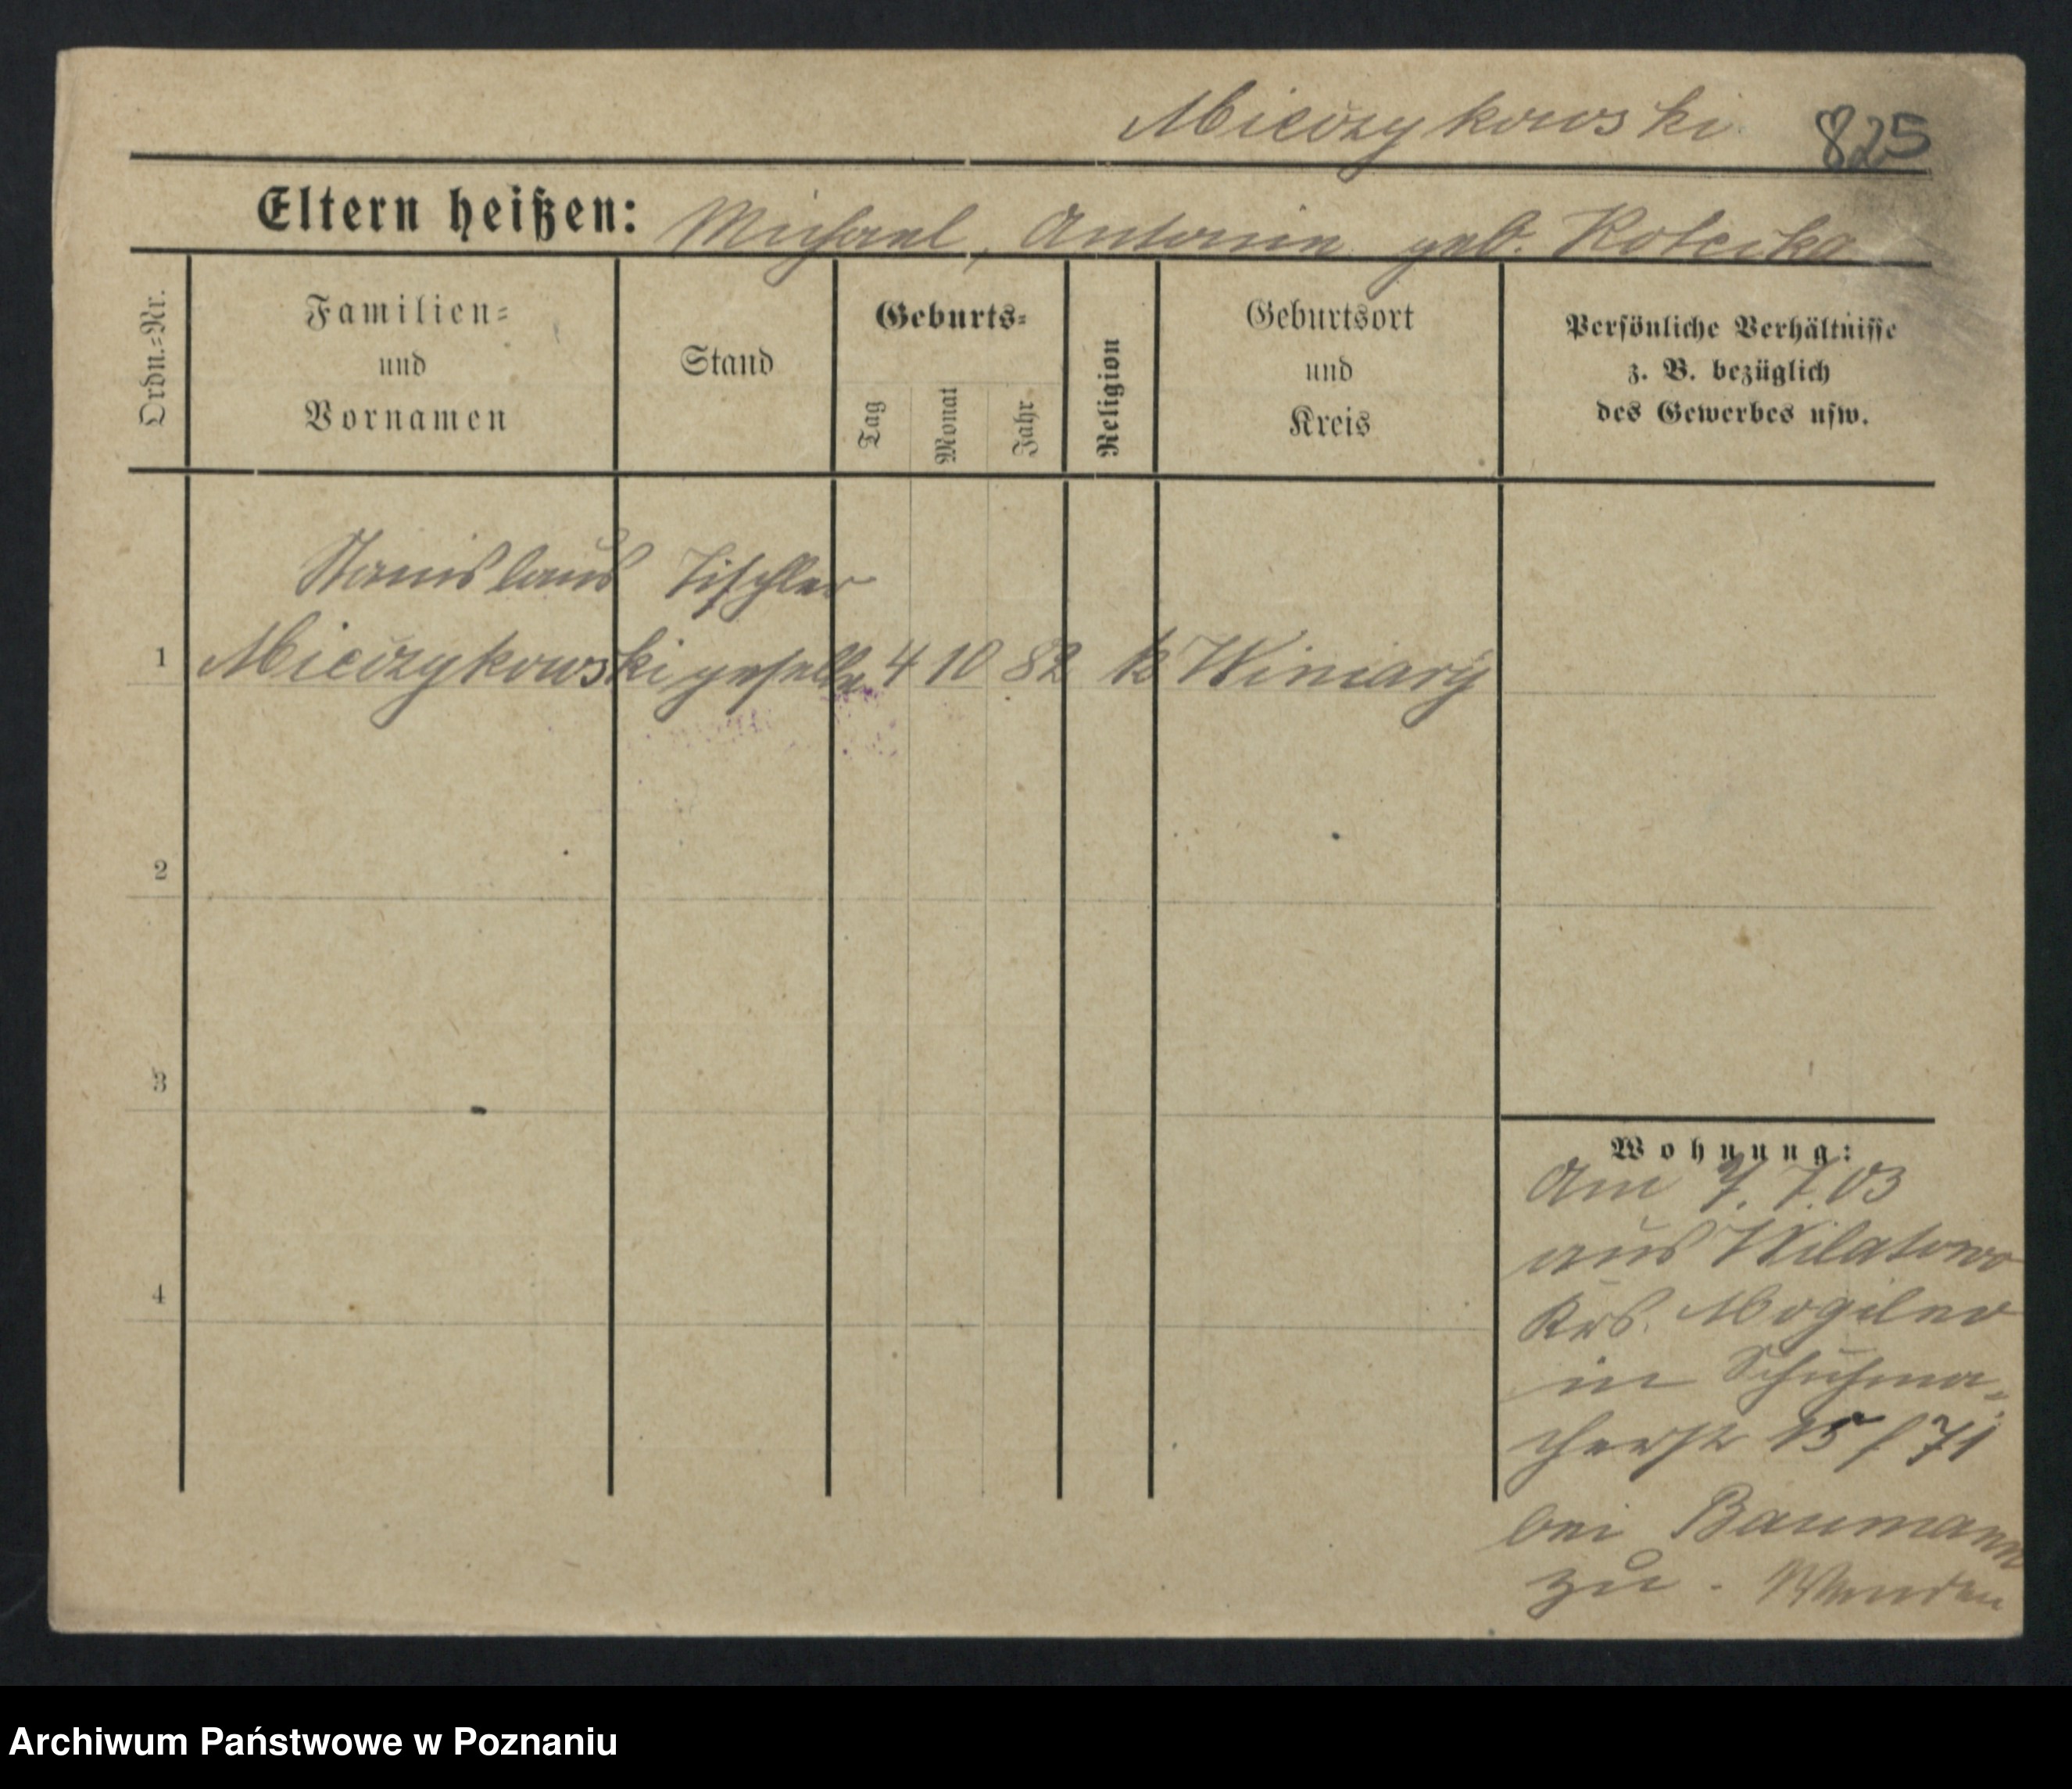 Mieczykowski 825
Eltern heißen: Michael, Antonie geb.
Ordn.=Nr.
Familien=
und
Vornamen
Stand
Geburts=
Tag
Monat
Jahr
Religion
Geburtsort
und
Kreis
Persönliche Verhältnisse
z. B. bezüglich
des Gewerbes usw.
Stanislaus Tischler
1 Mieczykowski geselle 4 10 82 k Winiary
2
3
4
Wohnung:
Am 7. 7. 03
aus Wilatowo
Krs. Mogilno
in Schuhma-
cherstr 15 / 71
bei Baumann
zu.
Archiwum Państwowe w Poznaniu